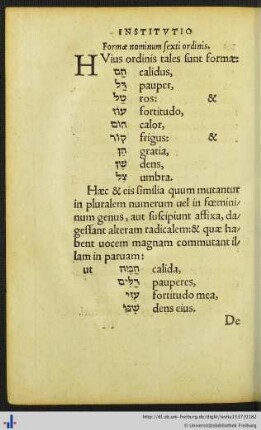 INSTITVTIO
Formæ nominum sexti ordinis.
HVius ordinis tales sunt formæ:
חַם calidus,
דַּל pauper,
טַל ros: &
עוֹז fortitudo,
חוֹם calor,
קוֹר frigus: &
חֵן gratia,
שֵׁן dens,
צֵל umbra.
Hæc & eis similia quum mutantur
in pluralem numerum uel in fœmini
num genus, aut suscipiunt affixa, da
gessant alteram radicalem: & quæ ha
bent uocem magnam commutant il
lam in paruam:
ut חַמָּה calida,
דַּלִּים pauperes,
עֻזִּי fortitudo mea,
שִׁנּוֹ dens eius.
De
http://dl.ub.uni-freiburg.de/diglit/
© Universitätsbibliothek Freiburg